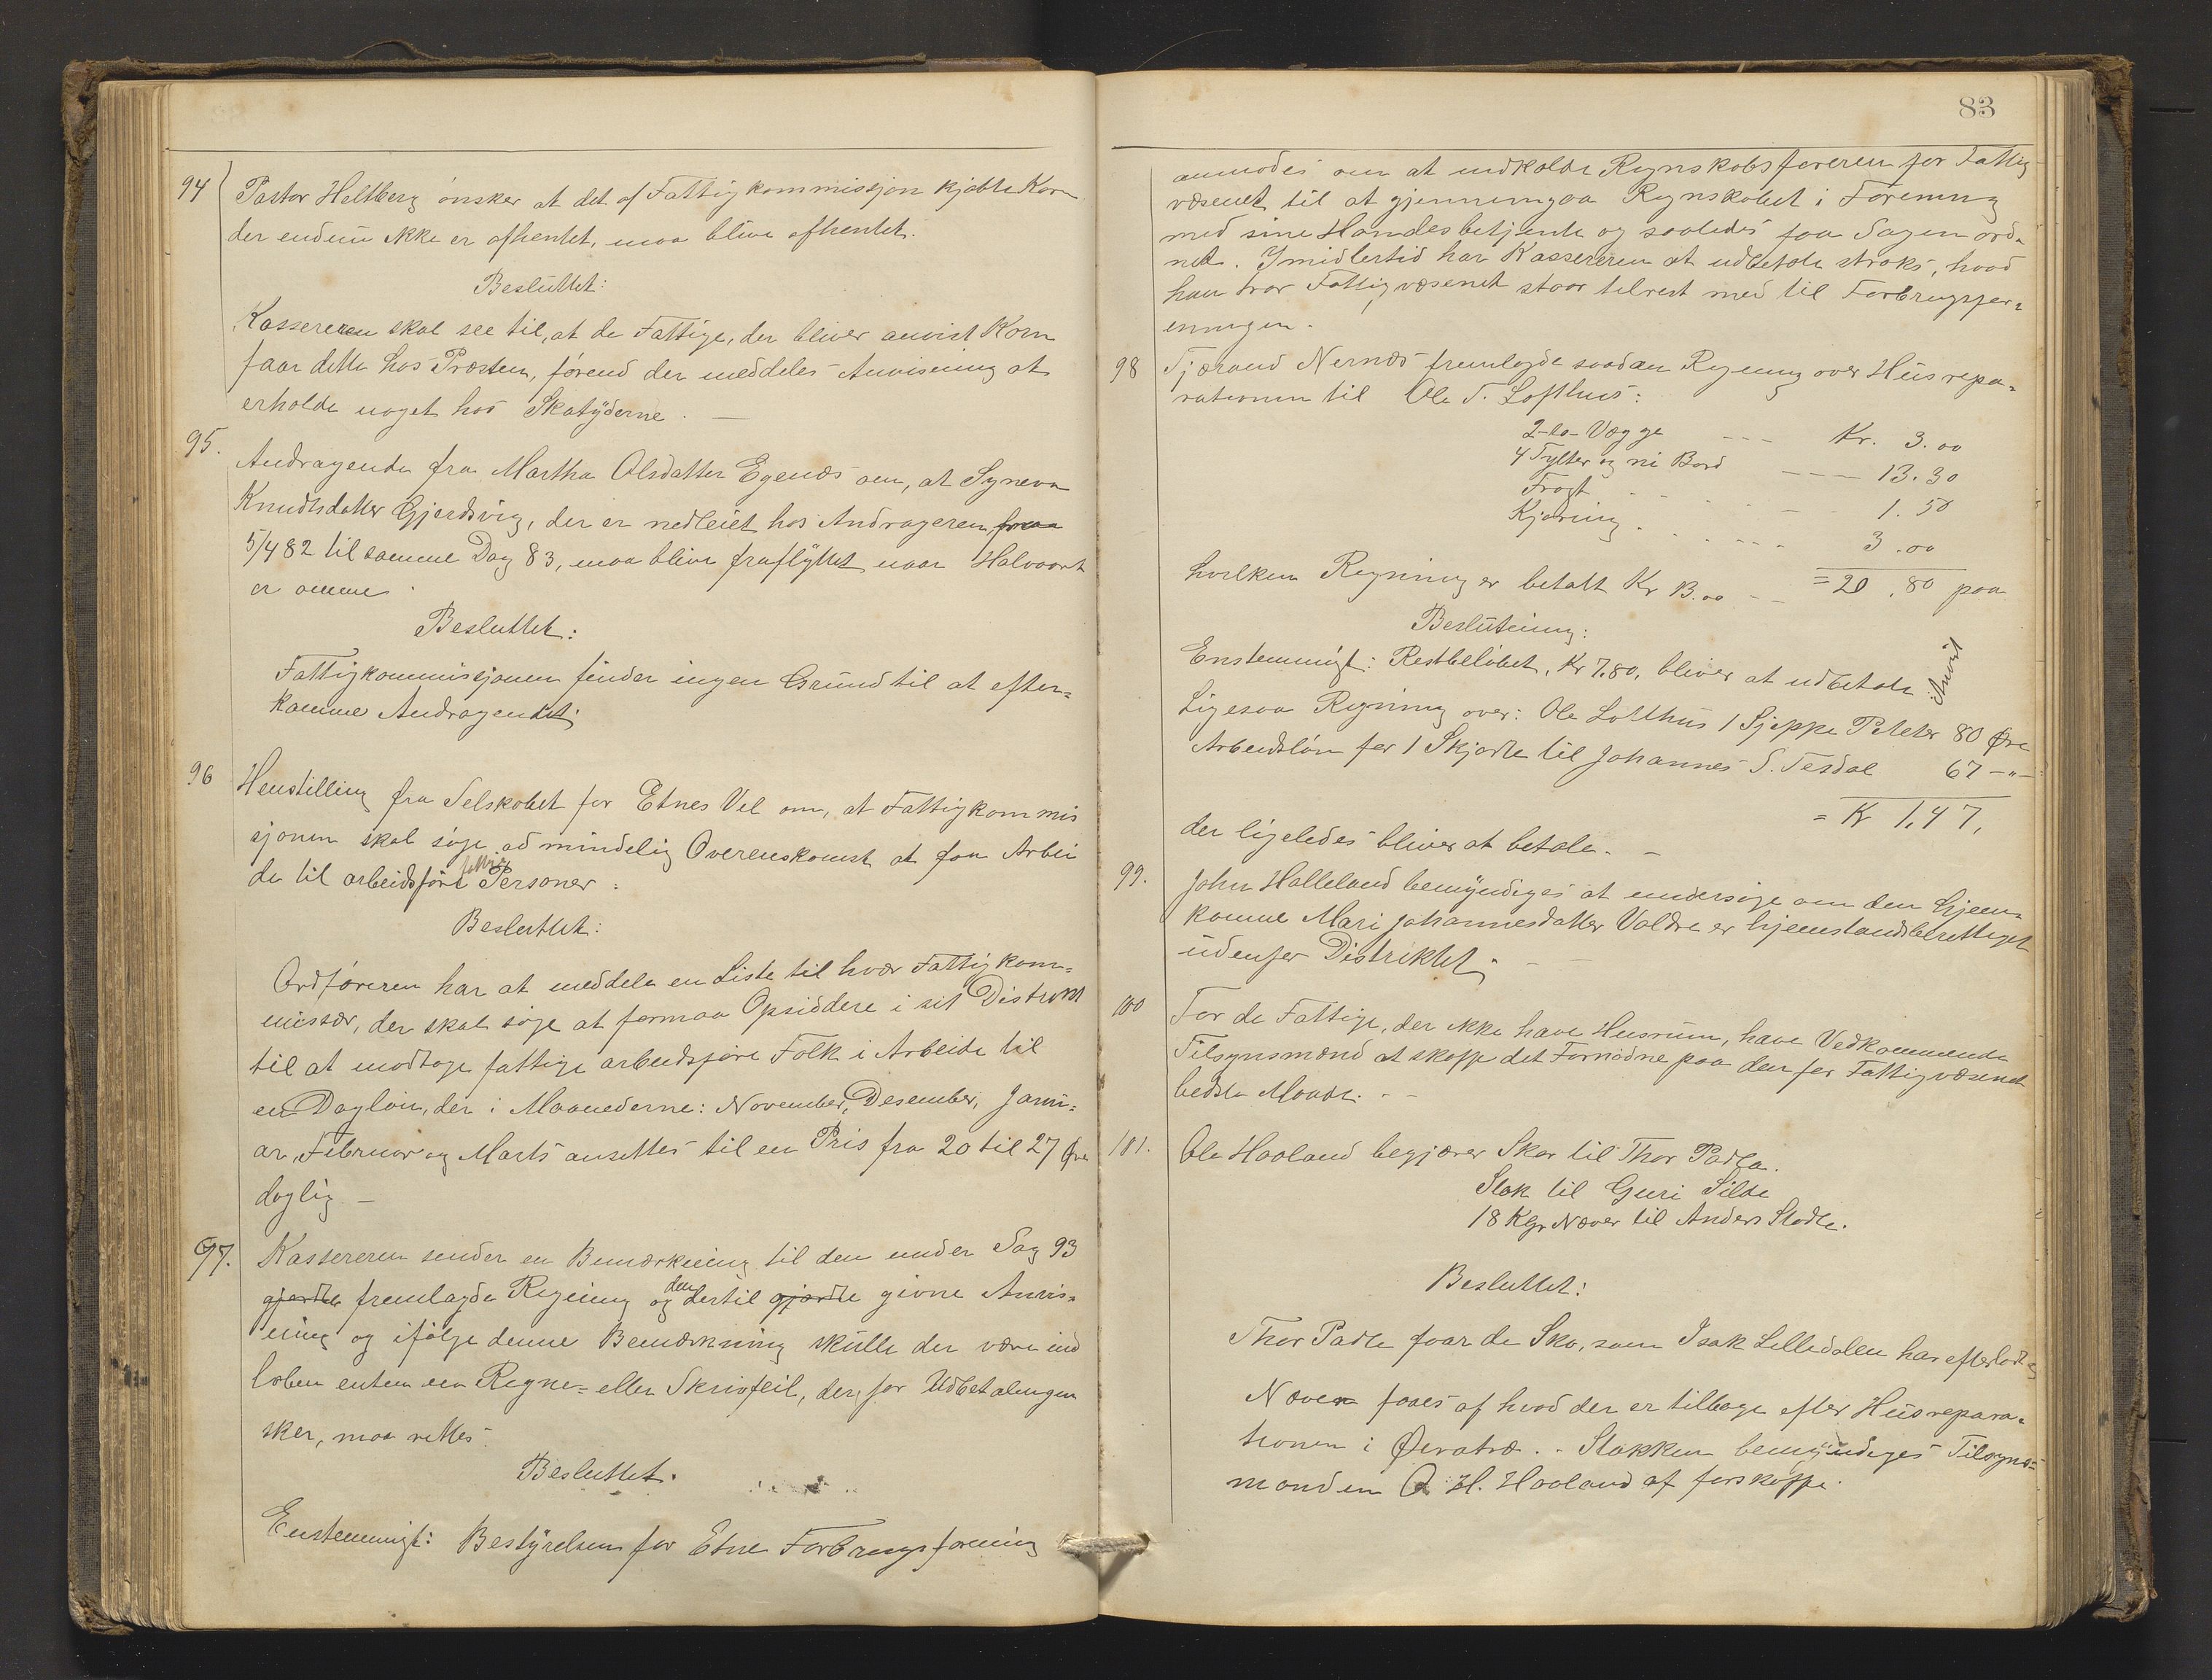 94 Pastor Heltberg ønsker at det af Fattigkommissjon kjøbte Korn
der endnu ikke er afhentet, maa blive afhentet.
Besluttet:
Kassereren skal see til, at de Fattige, der bliver anvist Korn
faar dette hos Præsten, førend der meddeles Anvisning at
erholde noget hos Skatyderne. —
95. Andragende fra Martha Olsdatter Egenæs om, at Syneva
Knudtsdatter Gjerdsvig, der er nedleiet hos Andrageren fraa
5/4 82 til samme Dag 83, maa blive fraflyttet naar Halvaaret
er omme.
Besluttet:
Fattigkommissjonen finder ingen Grund til at efter=
komme Andragendet.
96 Henstilling fra Selskabet for Etnes Vel om, at Fattigkommis
sjonen skal søge ad mindelig Overenskomst at faa Arbei
de til arbeidsføre fattige Personer.
Besluttet:
Ordføreren har at meddele en Liste til hver Fattigkom=
missær, der skal søge at formaa Opsiddere i sit Distrikt
til at modtage fattige arbeidsføre Folk i Arbeide til
en Dagløn, der i Maanederne: November, Desember, Janu=
ar, Februar og Marts ansettes til en Pris fra 20 til 27 Øre
daglig —
97. Kassereren sender en Bemærkning til den under Sag 93
gjorte fremlagde Regning og den dertil gjorte givne Anvis=
ning og ifølge denne Bemærkning skulle der være ind
løben enten en Regne= eller Skrivfeil, der, før Udbetalingen
sker, maa rettes.
Besluttet.
Enstemmigt: Bestyrelsen for Etne Forbrugsforening
83
anmodes om at indkalde Regnskabsføreren for Fattig
væsenet til at gjennemgaa Regnskabet i Forening
med sine Handelsbetjente og saaledes faa Sagen ord=
net. Imidlertid har Kassereren at udbetale straks, hvad
han tror Fattigvæsenet staar tilrest med til Forbrugsfor=
eningen.
98 Tjærand Nernæs fremlagde saadan Regning over Husrepa=
rationen til Ole T. Lofthus:
2-to- Vægge - - - Kr. 3.00
4 Tylter og ni Bord - - 13.30
Fragt - - - 1.50
Kjøring. - - - 3.00
hvilken Regning er betalt Kr 13.00 - - = 20.80 paa
Beslutning:
Enstemmigt: Restbeløbet, Kr 7.80, bliver at udbetale Anvist
Ligesaa Regning over: Ole Lofthus 1 Skjeppe Poteter 80 Øre
Arbeidsløn for 1 Skjorte til Johannes S. Tesdal 67 —"—
= Kr 1,47,
der ligeledes bliver at betale. —
99. John Halleland bemyndiges at undersøge om den hjem=
komne Mari Johannesdatter Valdre er hjemstandsberettiget
udenfor Distriktet. — —
100 For de Fattige, der ikke have Husrum, have Vedkommende
Tilsynsmænd at skaffe det Fornødne paa den for Fattigvæsenet
bedste Maade. - -
101. Ole Haaland begjærer Skor til Thor Padla.
Stak til Guri Silde
18 Kgr Næver til Anders Stødle.
Besluttet:
Thor Padle faar de Sko, som Isak Lilledalen har efterladt
Næver faaes af hvad der er tilbage efter Husrepara=
tionen i Øvatræ. - Stakken bemyndiges Tilsyns=
manden O. H. Haaland at forskaffe.